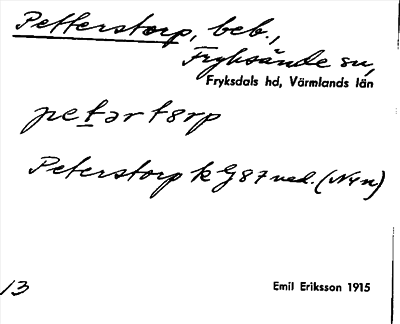 Petterstorp, beb.,
Fryksände sn,
Fryksdals hd, Värmlands län
petərtørp
Peterstorp k G87 ved. (Nyn)
13
Emil Eriksson 1915